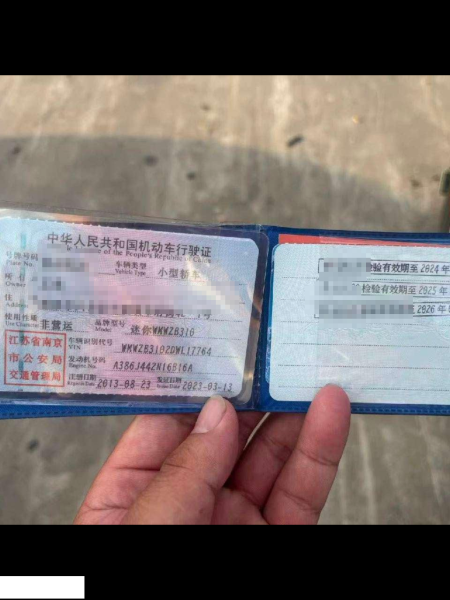 中华人民共和国机动车行驶证
of the People's Republic of China
号牌号码
Plate No.
车辆类型
Vehicle Type
小型轿车
所有
Owner
住
Address
1号
使用性质
Use Character
非营运
品牌型号
Model
迷你WMWZB310
江苏省南京
市公安局
交通管理局
车辆识别代号
VIN
WMWZB310ZDWL17764
发动机号码
Engine No.
A386J442N16B16A
注册日期
Register Date
2013-08-23
发证日期
Issue Date
2023-03-13
检验有效期至 2024
检验有效期至 2025
2026